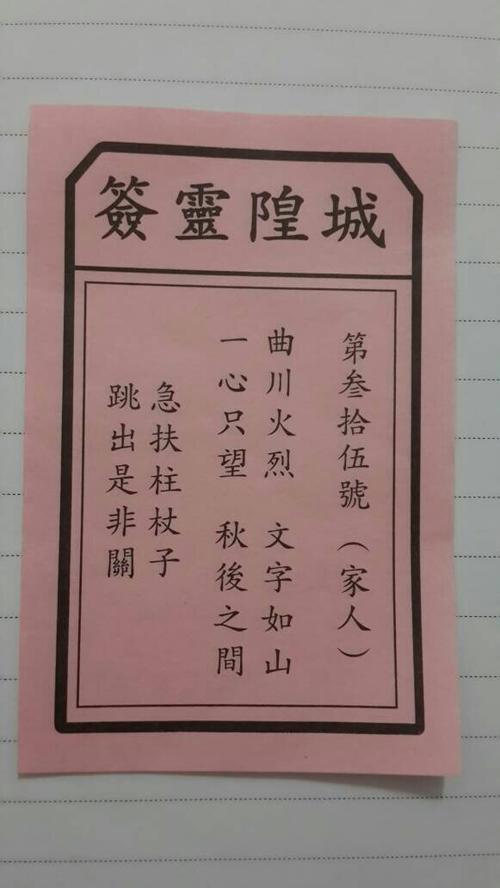 城隍靈簽
第叁拾伍號（家人）
曲川火烈　文字如山
一心只望　秋後之間
急扶柱杖子
跳出是非關